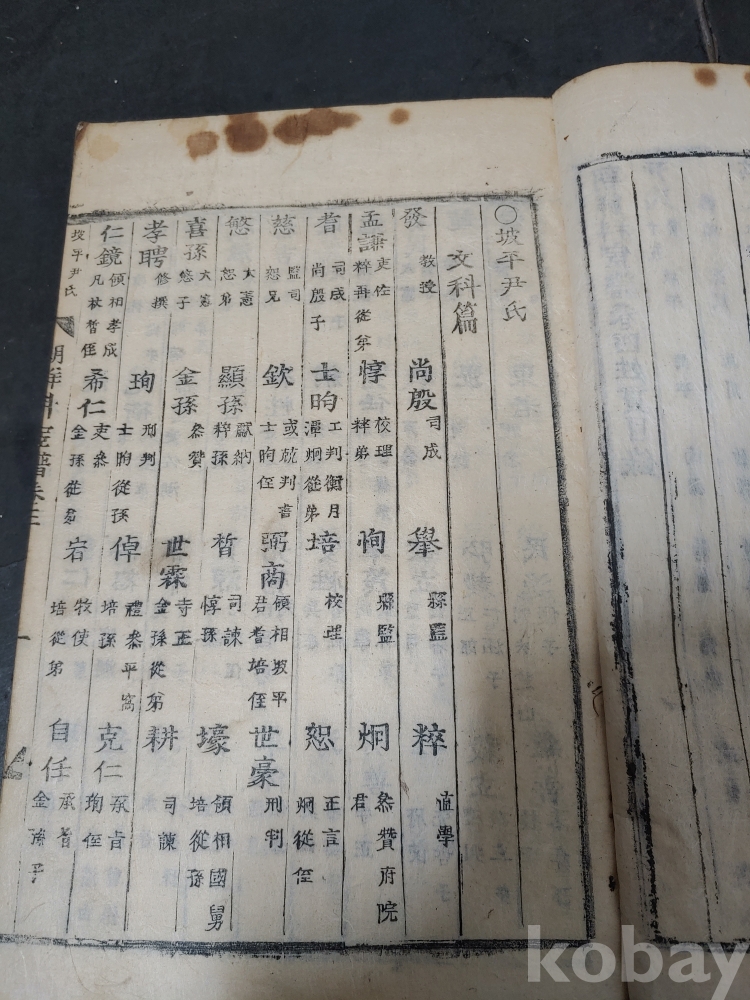 ○坡平尹氏
文科篇
發 教授 尚殷 司成 擧 縣監 粹 直學
孟謙 吏佐 粹再從弟 惇 校理 粹弟 恂 縣監 炯 參贊府院君
者 司成 尚殷子 士昀 工判 潭炯從弟 培 校理 恕 正言 炯從侄
慈 監司 恕兄 欽 士昀侄 弼商 領相坡平君 培侄 世豪 刑判
大憲 恕弟 顯孫 獻納 粹孫 晳 司諫 惇孫 壕 領相國舅 培從孫
喜孫 大憲 金孫 參贊 世霖 寺正 金孫從弟 耕 司諫
孝聘 修撰 珣 刑判 士昀從孫 倬 禮參平窩 培孫 克仁 承旨 珣侄
仁鏡 領相孝成 几杖晳侄 希仁 吏參 金孫從弟 宕 牧使 培從弟 自任 承旨 金孫子
坡平尹氏
kobay